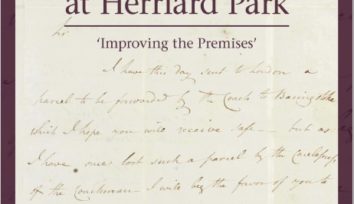 at Herriard Park
'Improving the Premises'
Sir
I have this day sent to London a
parcel to be forwarded by the Coach to Basingstoke
which I hope you will receive safe — but as
I have once lost such a parcel by the Carelessness
of the Coachman — I will beg the favor of you to